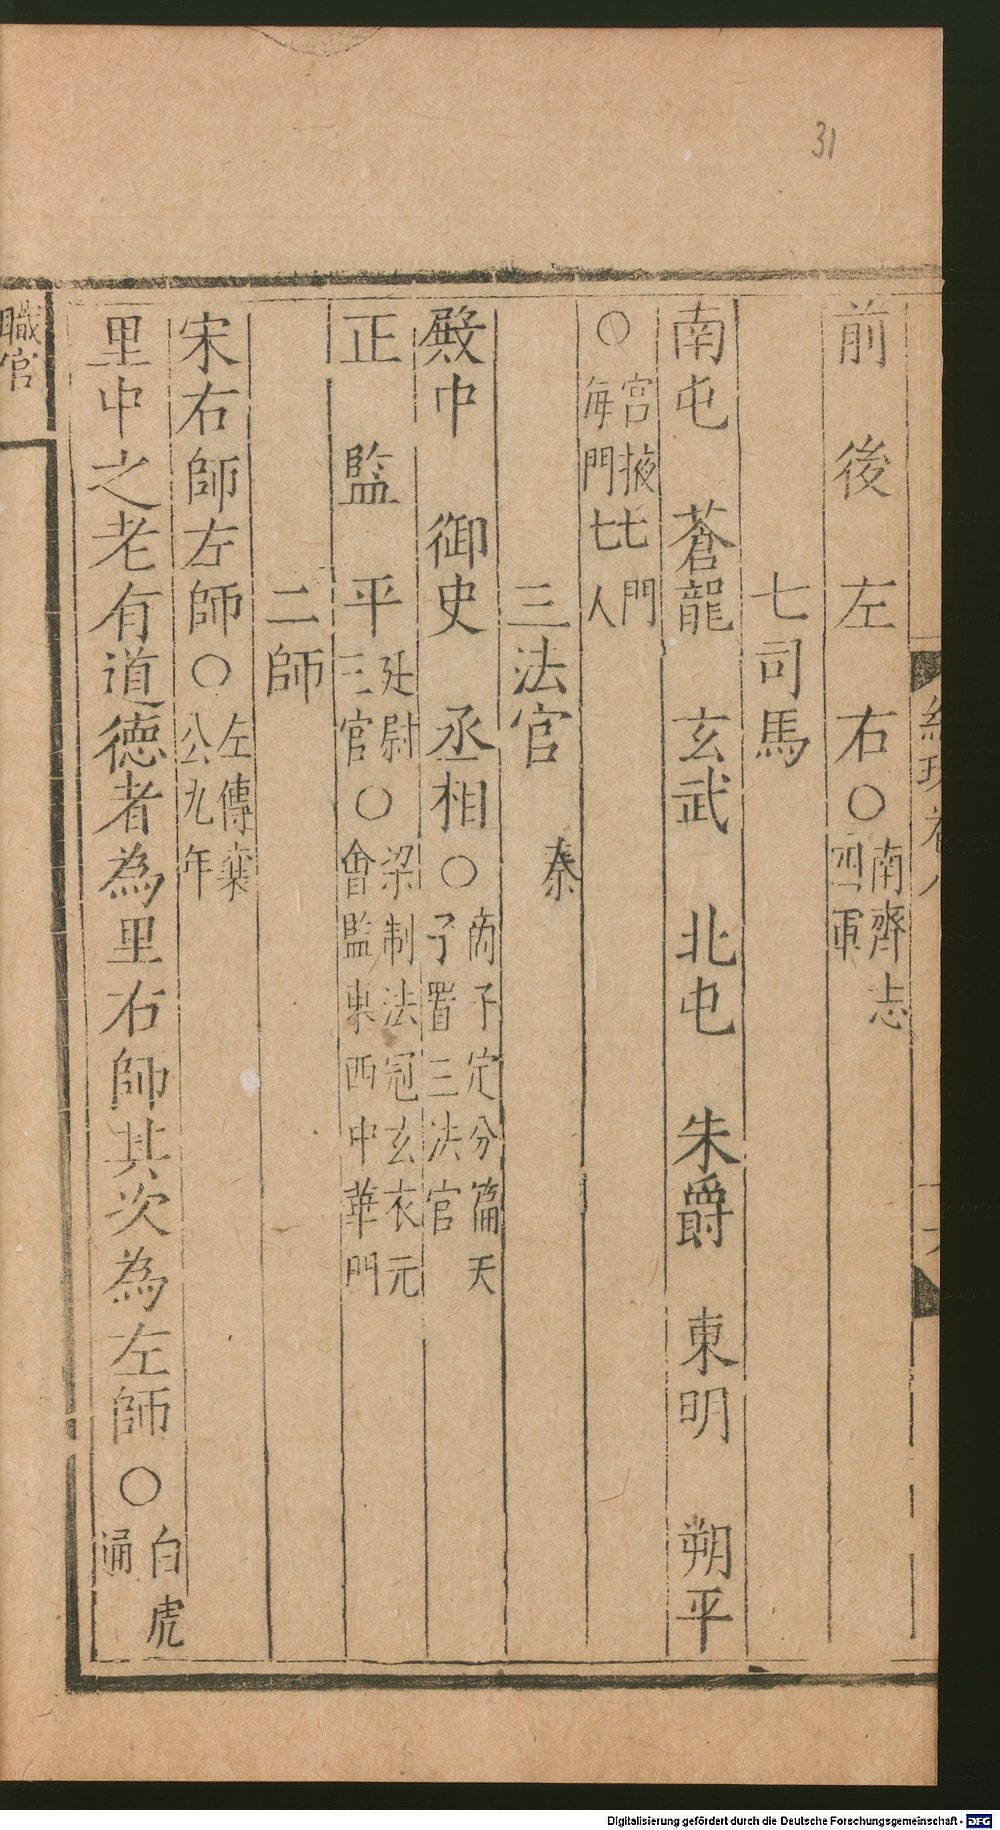 31
前　後　左　右〇南齊志四軍
七司馬
南屯　蒼龍　玄武　北屯　朱爵　東明　朔平
〇宮掖七門每門七人
三法官　秦
殿中　御史　丞相〇商子定分篇天子置三法官
正　監　平廷尉三官〇梁制法冠玄衣元會監東西中華門
二師
宋右師左師〇左傳襄公九年
里中之老有道德者為里右師其次為左師〇白虎通
職官
Digitalisierung gefördert durch die Deutsche Forschungsgemeinschaft - DFG